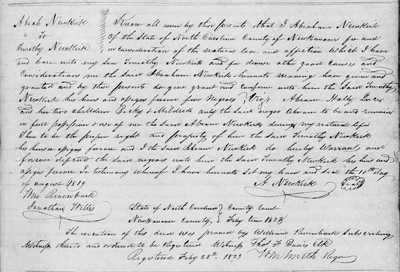 Abrah Newkirk
to
Timothy Newkirk
Know all men by these presents that I Abraham Newkirk
of the State of North Carolina County of Newhanover for and
in consideration of the natural love and affection which I have
and bare unto my son Timothy Newkirk and for divers other good causes and
Considerations me the Said Abraham Newkirk hereunto moving have given and
granted and by these presents do give grant and confirm unto him the Said Timothy
Newkirk his heirs and assigns forever five Negroes (Viz) Abram Hally
and her two children Becky & Mildred only the Said Negro Abram to be and remain
in full possession use of me the Said Abram Newkirk during my natural life
then to be the proper right and property of him the Said Timothy Newkirk
his heirs assigns forever and I the Said Abram Newkirk do hereby Warrant and
forever defend the Said negroes unto him the Said Timothy Newkirk his heirs and
assigns forever In testimony whereof I have hereunto set my hand and Seal the 10th day
of august 1819
A. Newkirk
Seal
Wm
Jonathan Willis
State of North Carolina County Court
Newhanover County, Feby term 1823
The execution of this deed was proved by William Subscribing
Witness thereto and ordered to be Registered Witness Thos F Davis Clk
Registered Feby 28th 1823
Wm Smith Regr